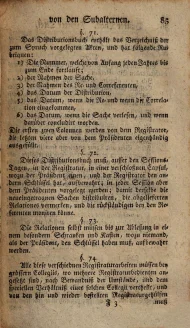 von den Subalternen. 85
§. 71.
Das Distributionsbuch enthält das Verzeichniß der
zum Spruch vorgelegten Akten, und hat folgende Ru-
briquen:
1) Die Nummer, welche von Anfang jeden Jahres bis
zum Ende fortläuft;
2) der Nahmen der Sache,
3) der Nahmen des Re- und Correferenten,
4) das Datum der Distribution,
5) das Datum, wenn die Re- und wenn die Correla-
tion eingekommen,
6) das Datum, wenn die Sache verlesen, und wenn
darüber concludirt worden.
Die ersten vier Columnen werden von dem Registrator,
die letzten aber von dem Präsidenten eigenhändig
ausgefüllt.
§. 72.
Dieses Distributionsbuch muß, außer den Sessions-
Tagen, in der Registratur, in einer verschlossenen
wozu der Präsident und der Registrator den
Schlüssel hat, aufbewahrt; in jeder Session aber
dem
Sachen distribuiren, die abgelieferten
Relationen bemerken, und die rückständigen den Re-
ferenten monirt werden können.
§. 73.
Die Relationen selbst müssen bis zur Ablesung in ei-
nem besondern Schranken und Kasten, wozu niemand
als der Präsident, den Schlüssel haben muß, aufbewahrt
werden.
§. 74.
Alle diese verschiedenen Registraturarbeiten müssen bey
grössern Collegiis, wo mehrere Registraturbedienten an-
gesetzt sind, nach Bewandniß der Umstände, und dem
vertheilt, und
von den hin und wieder bestellten Registraturgehülfen
F 3 muß